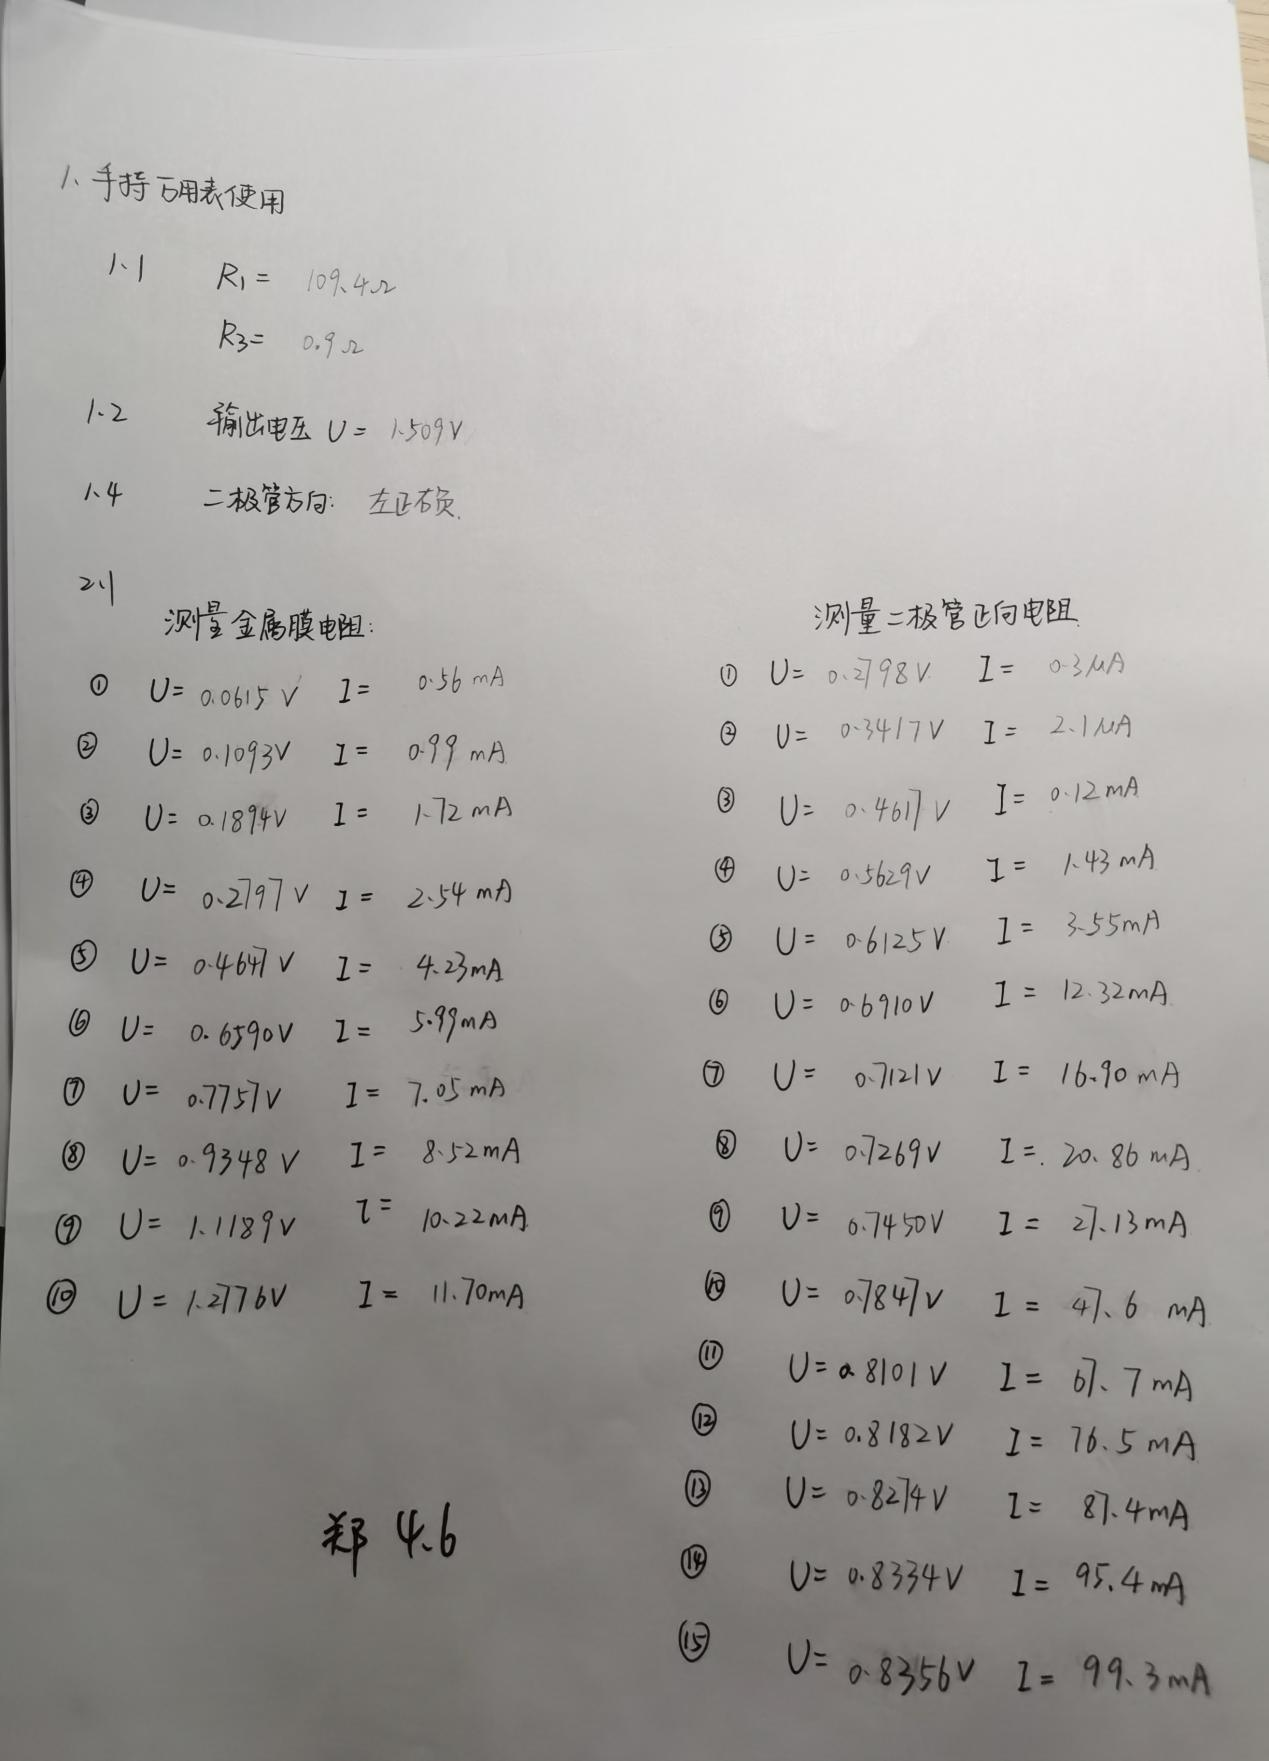 1、手持万用表使用
1.1 R₁= 109.4Ω
R₃= 0.9Ω
1.2 输出电压 U= 1.509V
1.4 二极管方向: 左正右负.
2.1
测量金属膜电阻:
① U= 0.0615 V I= 0.56 mA
② U= 0.1093V I= 0.99 mA
③ U= 0.1894V I= 1.72 mA
④ U= 0.2797V I= 2.54 mA
⑤ U= 0.4647V I= 4.23mA
⑥ U= 0.6590V I= 5.99mA
⑦ U= 0.7757V I= 7.05 mA
⑧ U= 0.9348 V I= 8.52mA
⑨ U= 1.1189V I= 10.22mA
⑩ U= 1.2776V I= 11.70mA
测量二极管正向电阻
① U= 0.2798V I= 0.3μA
② U= 0.3417V I= 2.1μA
③ U= 0.4617V I= 0.12mA
④ U= 0.5629V I= 1.43mA
⑤ U= 0.6125V I= 3.55mA
⑥ U= 0.6910V I= 12.32mA
⑦ U= 0.7121V I= 16.90mA
⑧ U= 0.7269V I= 20.86mA
⑨ U= 0.7450V I= 27.13mA
⑩ U= 0.7847V I= 47.6 mA
⑪ U= 0.8101V I= 67.7mA
⑫ U= 0.8182V I= 76.5mA
⑬ U= 0.8274V I= 87.4mA
⑭ U= 0.8334V I= 95.4mA
⑮ U= 0.8356V I= 99.3mA
郑 4.6